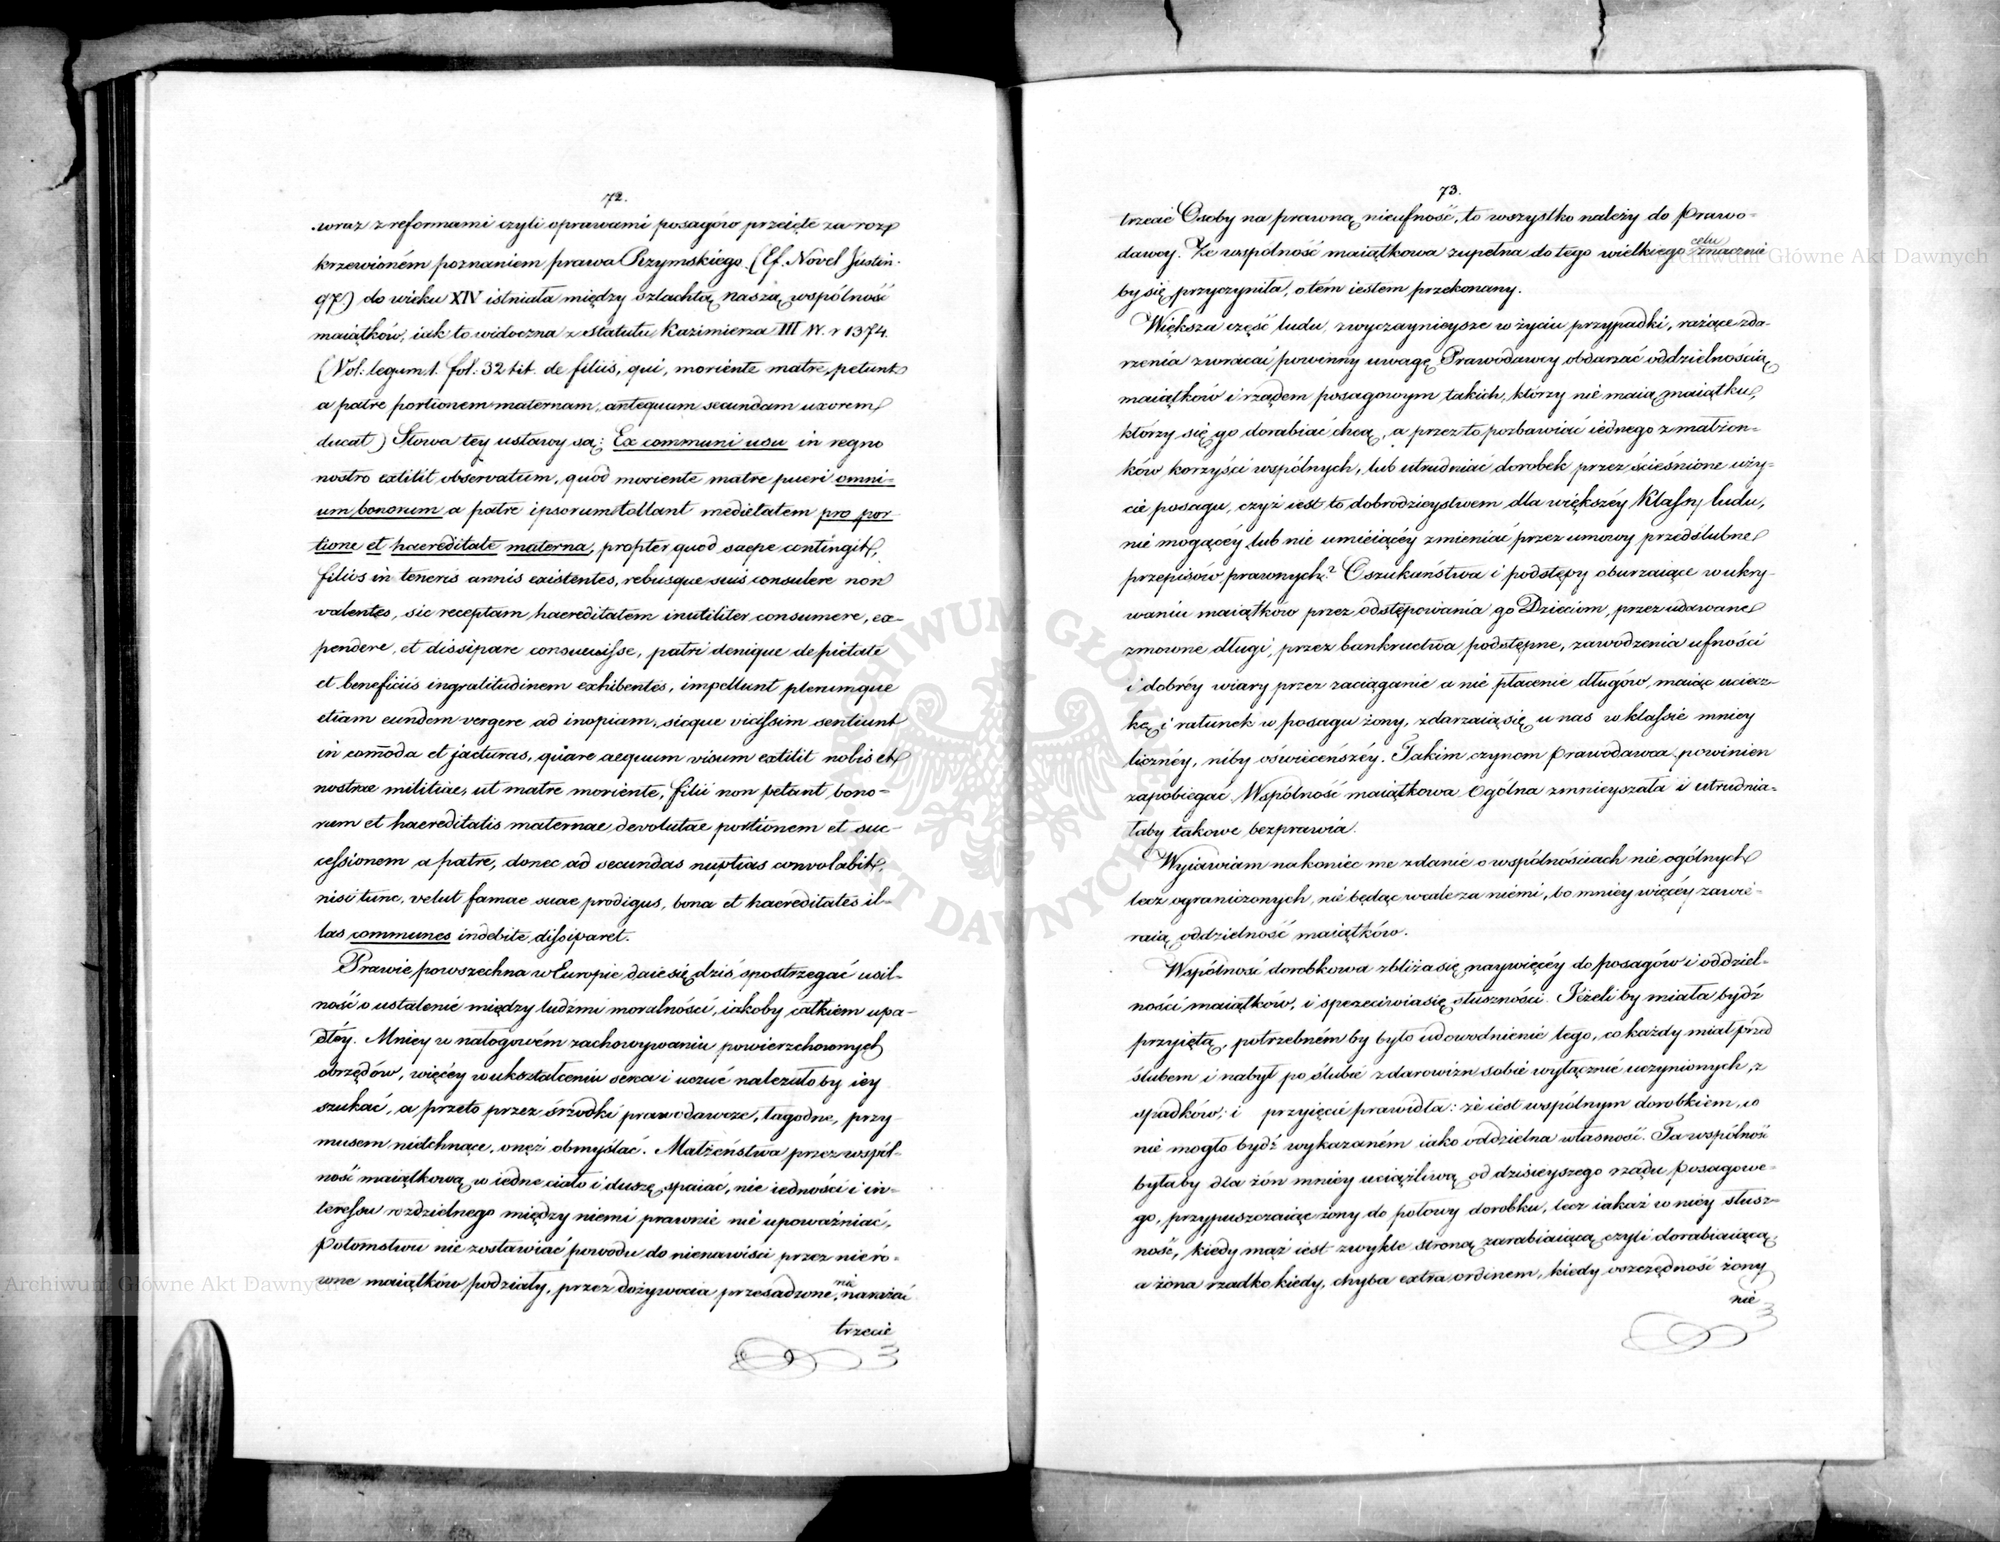 72.
wraz z reformami czyli oprawami posagów przeięte za roz-
krzewioném poznaniem prawa Rzymskiego. (Cf. Novel Justin.
97) do wieku XIV istniała między szlachtą naszą wspólność
maiątków, iak to widoczna z statutu Kazimierza III W. r 1374.
(Vol: legum 1. fol. 32 tit. de filiis, qui, moriente matre, petunt
a patre portionem maternam, antequam secundam uxorem
ducat) Słowa tey ustawy są: Ex communi usu in regno
nostro extitit observatum, quod moriente matre pueri omni-
um bonorum a patre ipsorum tollant medietatem pro por-
tione et haereditate materna, propter quod saepe contingit,
filios in teneris annis existentes, rebusque suis consulere non
valentes, sic receptam haereditatem inutiliter consumere, ex-
pendere, et dissipare consuevisse, patri denique de pietate
et beneficiis ingratitudinem exhibentes, impellunt plerumque
etiam eundem vergere ad inopiam, sicque vicissim sentiunt
in com̄oda et jacturas, quare aequum visum extitit nobis et
nostrae militiae, ut matre moriente, filii non petant bono-
rum et haereditatis maternae devolutae portionem et suc-
cessionem a patre, donec ad secundas nuptias convolabit,
nisi tunc, velut famae suae prodigus, bona et haereditates il-
las communes indebite dissiparet.
Prawie powszechna w Europie daie się dziś spostrzegać usil-
ność o ustalenie między ludźmi moralności, iakoby całkiem upa-
dłéy. Mniey w nałogowém zachowywaniu powierzchownych
obrzędów, więcéy w ukształceniu serca i uczuć należałoby iey
szukać, a przeto przez śrzodki prawodawcze, łagodne, przy-
musem nietchnące, onęż obmyślać. Małżeństwa przez wspól-
ność maiątkową w iedne ciało i duszę spaiać, nie iedności i in-
teressu rozdzielnego między niemi prawnie nie upoważniać,
Potomstwu nie zostawiać powodu do nienawiści przez nieró-
wne maiątków podziały, przez dożywocia przesadzone, nie narażać
trzecie
73.
trzecie Osoby na prawną nieufność, to wszystko należy do Prawo-
dawcy. Że wspólność maiątkowa zupełna do tego wielkiego celu znacznie
by się przyczyniła, o tém iestem przekonany.
Większa część ludu, zwyczaynieysze w życiu przypadki, rażące zda-
rzenia zwracać powinny uwagę Prawodawcy obdarzać oddzielnością
maiątków i rządem posagowym takich, którzy nie maią maiątku,
którzy się go dorabiać chcą, a przez to pozbawiać iednego z małżon-
ków korzyści wspólnych, lub utrudniać dorobek przez ścieśnione uży-
cie posagu, czyż iest to dobrodzieystwem dla większéy Klassy ludu,
nie mogącéy lub nie umieiącéy zmieniać przez umowy przedślubne
przepisów prawnych? Oszukaństwa i podstępy oburzaiące w ukry-
waniu maiątków przez odstępowania go Dzieciom, przez udawane
zmowne długi, przez bankructwa podstępne, zawodzenia ufności
i dobréy wiary przez zaciąganie a nie płacenie długów, maiąc uciecz-
kę i ratunek w posagu żony, zdarzaią się u nas w klassie mniey
licznéy, niby oświeceńszéy. Takim czynom Prawodawca powinien
zapobiegać. Wspólność maiątkowa Ogólna zmnieyszała i utrudnia-
łaby takowe bezprawia.
Wyiawiam nakoniec me zdanie o wspólnościach nie ogólnych
lecz ograniczonych, nie będąc wcale za niemi, bo mniey więcéy zawie-
raią oddzielność maiątków.
Wspólność dorobkowa zbliża się naywięcéy do posagów i oddziel-
ności maiątków, i sprzeciwia się słuszności. Jeżeliby miała bydź
przyiętą, potrzebném by było udowodnienie tego, co każdy miał przed
ślubem i nabył po ślubie z darowizn sobie wyłącznie uczynionych, z
spadków; i przyięcie prawidła: że iest wspólnym dorobkiem, co
nie mogło bydź wykazaném iako oddzielna własność. Ta wspólność
byłaby dla żón mniey uciążliwą od dzisieyszego rządu posagowe-
go, przypuszczaiąc żony do połowy dorobku, lecz iakaż w niey słusz-
ność, kiedy mąż iest zwykle stroną zarabiaiącą czyli dorabiaiącą,
a żona rzadko kiedy, chyba extra ordinem, kiedy oszczędność żony
nie
Archiwum Główne Akt Dawnych
Archiwum Główne Akt Dawnych
ARCHIWUM GŁÓWNE AKT DAWNYCH